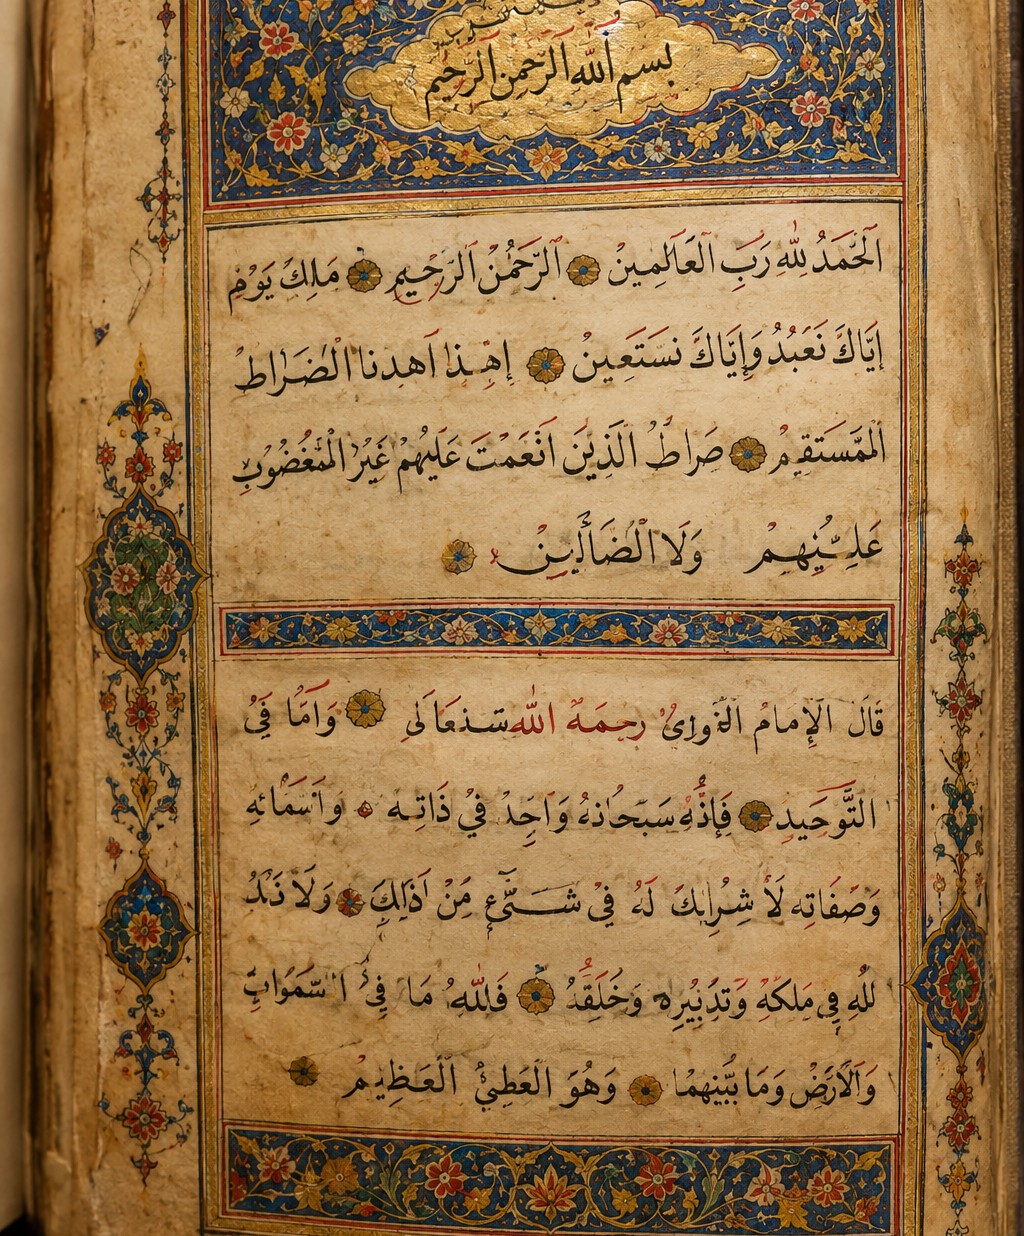 بسم الله الرحمن الرحيم
الحمد لله رب العالمين الرحمن الرحيم ملك يوم
إياك نعبد وإياك نستعين إهذا اهدنا الضراط
الممستقيم صراط الذين انعمت عليهم غير المغضوب
علينيهم ولا الضالين
قال الإمام النواي رحمة الله سنعالى واما في
التوحيد فإنه سبحانه واحد في ذاته واسمائه
وصفاته لا شرابك له في شيء من اذلك ولا ند
لله في ملكه وتدبيره وخلقه فلله ما في السموات
والارض وما بينهما وهو العطي العظيم